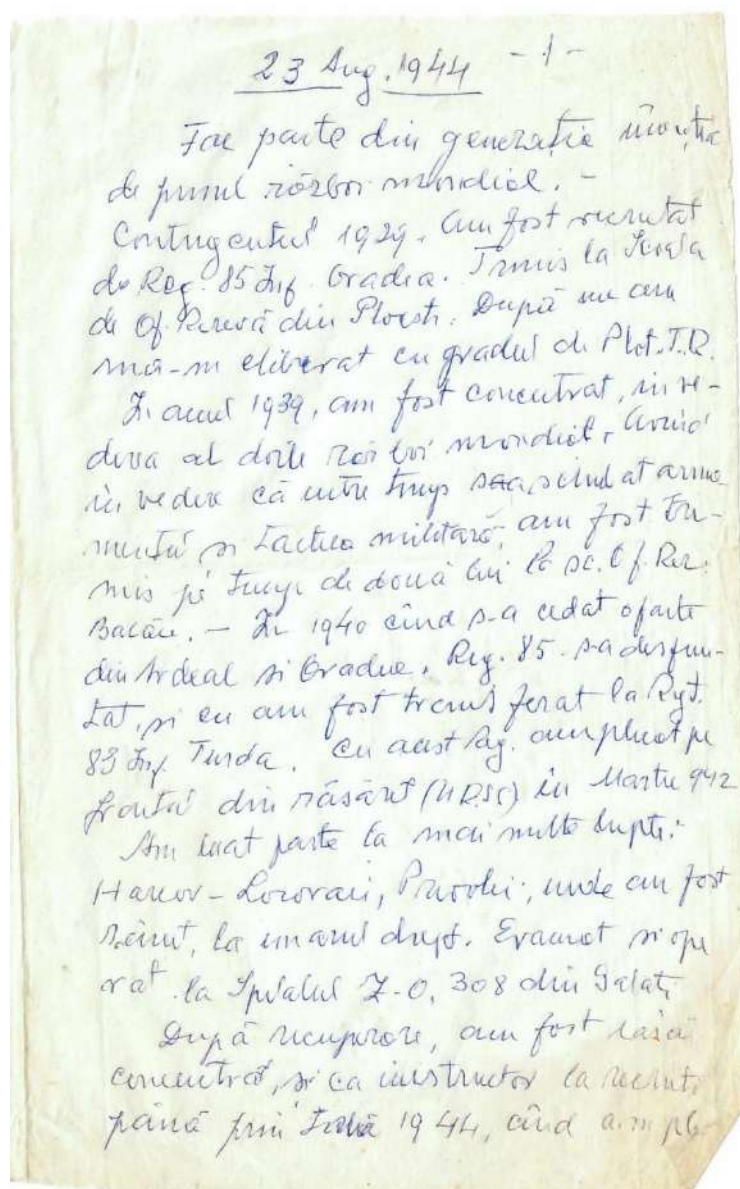 23 Aug. 1944 - 1 -
Fac parte din generația
de primul război mondial. -
Contingentul 1929. Am fost recrutat
de Reg. 85 Inf. Oradea. Trimis la Școala
de Of. Rezervă din Ploești. După un an
m-a-m eliberat cu gradul de Plot. T.R.
În anul 1939, am fost concentrat, în ve-
derea al doile război mondial, având
în vedere că între timp s-a schimbat arma-
mentul și tactica militară, am fost tri-
mis pe timp de două luni la Șc. Of. Rez.
Bacău. - În 1940 când s-a cedat o parte
din Ardeal și Oradea, Reg. 85 s-a desfiin-
țat, și eu am fost transferat la Rgt.
83 Inf. Turda. Cu acest Rg. am plecat pe
frontul din răsărit (URSS) în Martie 942
Am luat parte la mai multe lupte:
Harcov - unde am fost
rănit, la umărul drept. Evacuat și ope
rat la Spitalul Z.O. 308 din Galați
După recuperare, am fost
concentrat, și ca instructor la recruți
până prin 1944, când am